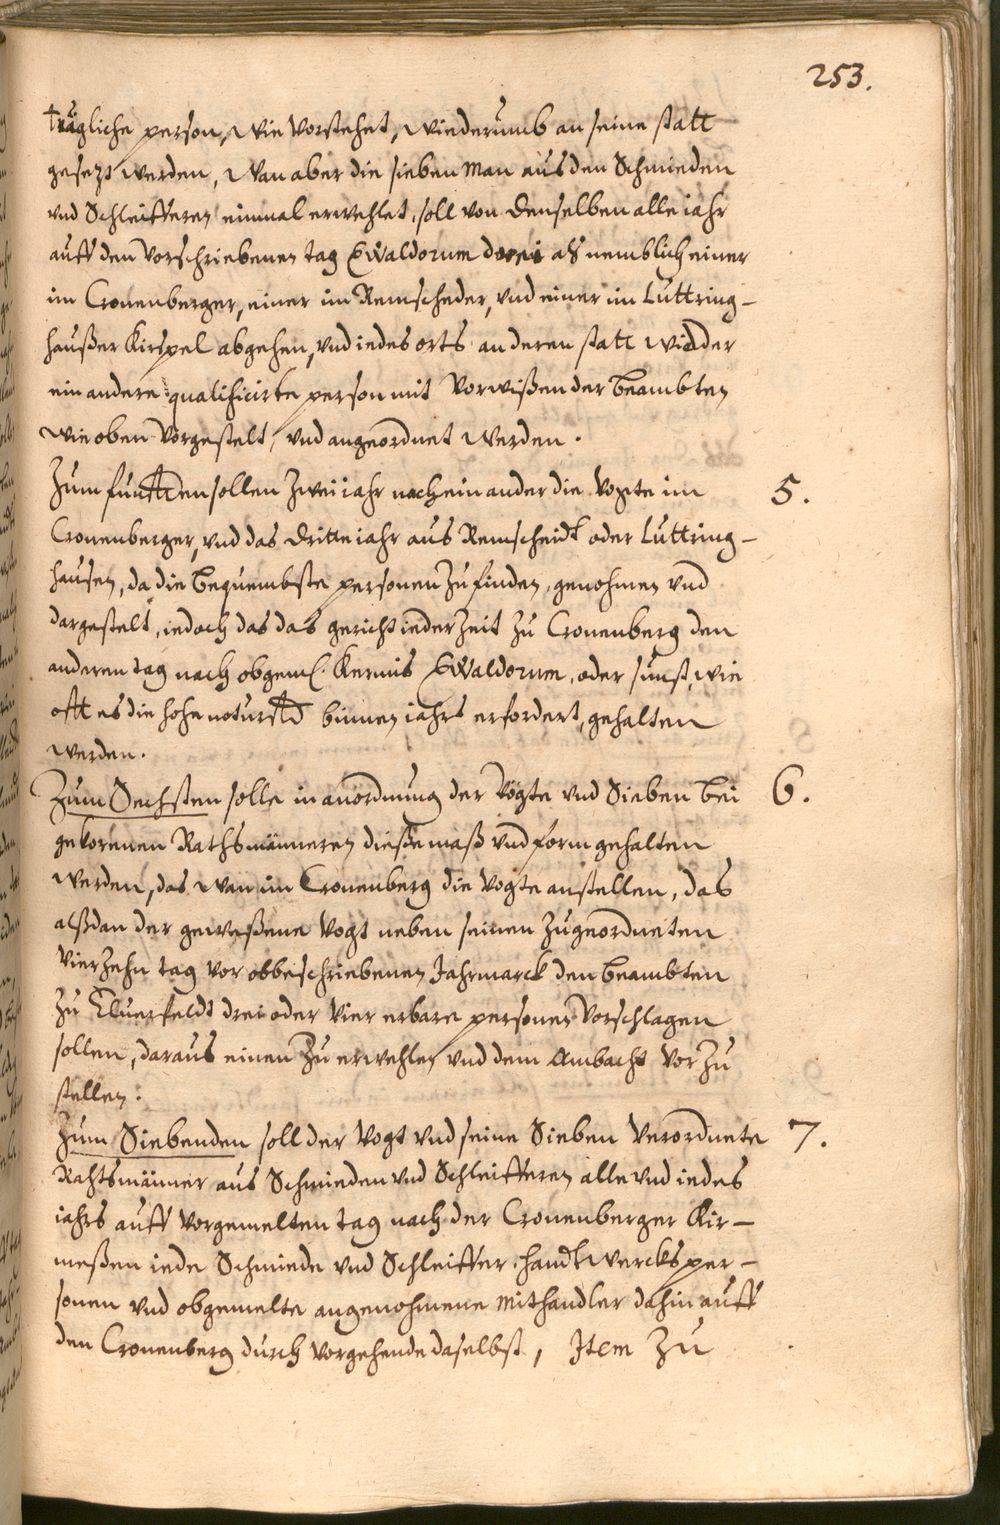 253.
trägliche person, wie vorstehet, wiederumb an seine statt
gesetzt werden, Wan aber die sieben Man aus den Schmieden
vnd Schleifferen einmal erwehlet, soll von denselben alle iahr
auff den vorschriebenen tag Ewaldorum drei als nemblich einer
im Cronenberger, einer im Remscheder, vnd einer im Luttring-
haußer Kirspel abgehen, vnd iedes orts an deren statt widder
ein andere qualificirte person mit vorwißen der Beambten
wie oben vorgestelt, vnd angeordnet werden.
Zum funfften sollen zwei iahr nach einander die Vogte im 5.
Cronenberger, vnd das dritte iahr aus Remscheidt oder Luttring-
hausen, da die bequembste personen zu finden, genohmen vnd
dargestelt, iedoch das das gericht ieder Zeit zu Cronenberg den
anderen tag nach obgeml. Kermis Ewaldorum, oder sunst, wie
offt es die hohe noturfft binnen iahrs erfordert, gehalten
werden.
Zum Sechsten solle in anordnung der Vögte vnd Sieben bei 6.
gekorenen Rathsmänneren dieße maß vnd form gehalten
werden, das wan im Cronenberg die Vogte anstellen, das
alßdan der geweßene Vogt neben seinen zugeordneten
vierzehn tag vor obbeschriebenen Jahrmarck den beambten
zu Eluerfeldt drei oder vier erbare personen vorschlagen
sollen, daraus einen zu erwehlen vnd dem Ambacht vor zu
stellen.
Zum Siebenden soll der Vogt vnd seine Sieben verordnete 7.
Rahtsmänner aus Schmieden vnd Schleifferen alle vnd iedes
iahrs auff vorgemelten tag nach der Cronenberger Kir-
meßen iede Schmiede vnd Schleiffer handtwercks per-
sonen vnd obgemelte angenohmene mithandler dahin auff
den Cronenberg durch vorgehende daselbst, Item zu